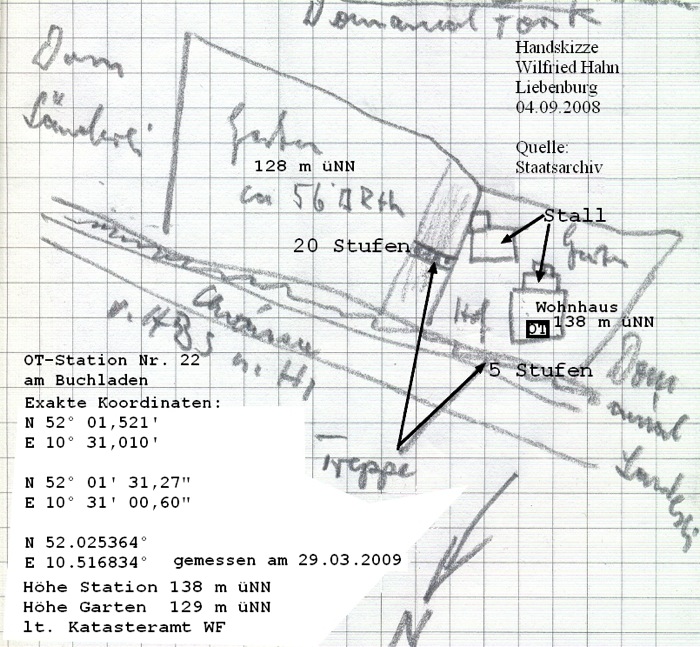 Domanial Forst
Handskizze
Wilfried Hahn
Liebenburg
04.09.2008
Quelle:
Staatsarchiv
Dom
Länderei
Garten
128 m üNN
ca 56 □Rth
20 Stufen
Stall
Garten
Hof
Wohnhaus
OT 138 m üNN
5 Stufen
Chaussee
v. HBS n. HI
Treppe
Dom
anial
N
OT-Station Nr. 22
am Buchladen
Exakte Koordinaten:
N 52° 01,521'
E 10° 31,010'
N 52° 01' 31,27"
E 10° 31' 00,60"
N 52.025364°
E 10.516834° gemessen am 29.03.2009
Höhe Station 138 m üNN
Höhe Garten 129 m üNN
lt. Katasteramt WF